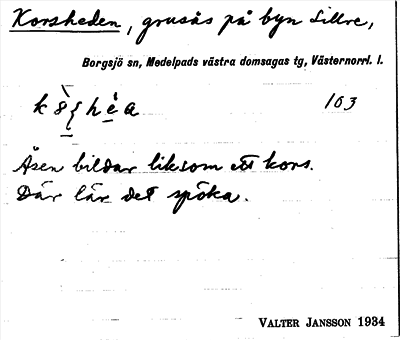 Korsheden, grusås på byn Lillre,
Borgsjö sn, Medelpads västra domsagas tg, Västernorrl. l.
103
Åsen bildar liksom ett kors.
Där lär det spöka.
VALTER JANSSON 1934